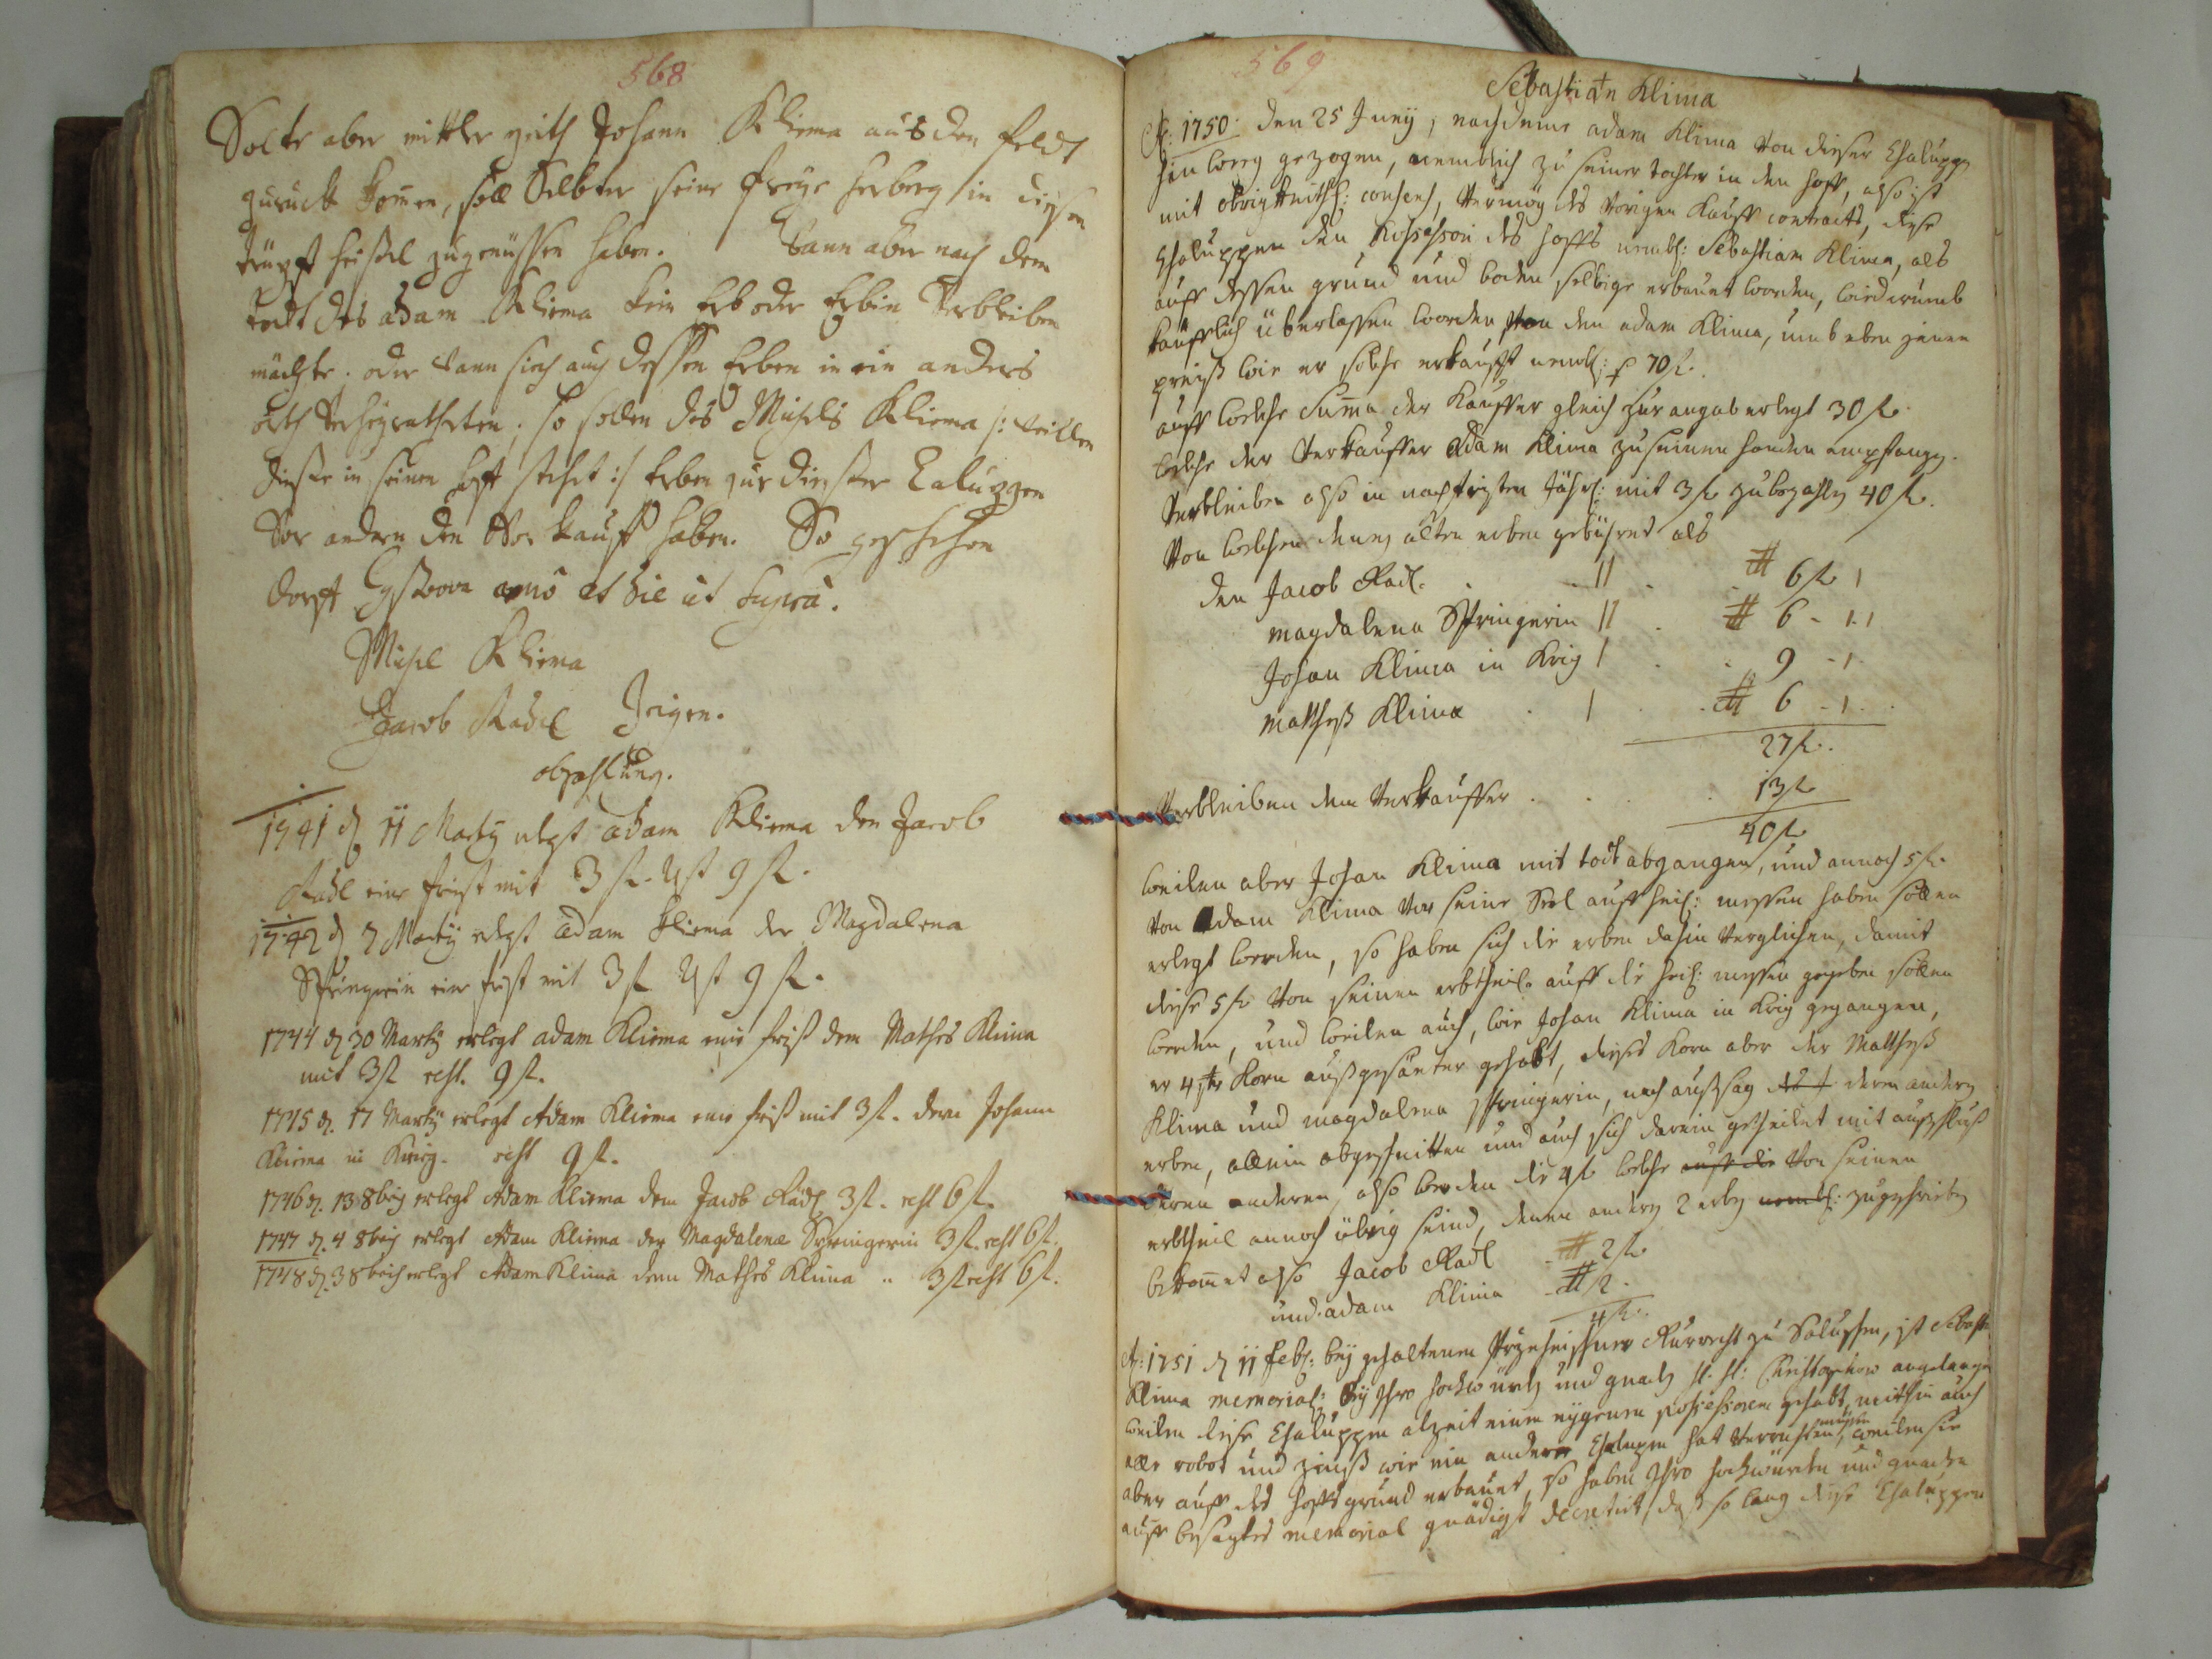 568
Solte aber mittler zeith Johann Kliema aus den feldt
zuruck komen, soll Selbter seine freye herberg in diesen
heißel zugenüssen haben. Wann aber nach dem
todt des adam Kliema kein Erb oder Erbin Verbleiben
möchte. oder Wann sich auch dessen Erben in ein anders
orth Verheyratheten, so sollen des Michels Kliema /: Weillen
dieße in seinen hoff stehet :/ Erben zur dießer Caluppen
Vor andern den Vor kauff haben. So geschehen
dorff anno et die ut supra.
Michl Kliema
Jacob Radl Zeigen.
abzahlung.
1741 d 11 Marty erlegt adam Kliema den Jacob
Radl eine frist mit 3 f. Rst 9 f.
1742 d 7 Marty erlegt adam Kliema der Magdalena
Springerin eine frist mit 3 f Rst 9 f.
1744 d 30 Marty erlegt adam Kliema eine frist dem Mathes Klima
mit 3 f rest. 9 f.
1745 d. 17 Marty erlegt Adam Kliema eine frist mit 3 f. dem Johann
Kliema in Krieg. rest 9 f.
1746 d. 13 8bris erlegt Adam Kliema dem Jacob Radl 3 f. rest 6 f.
1747 d. 4 8bris erlegt Adam Kliema der Magdalena Springerin 3 f. rest 6 f.
1748 d. 3 8bris erlegt Adam Klima dem Mathes Klima .. 3 f rest 6 f.
569
Sebastian Klima
A: 1750: den 25 Juny, nachdeme adam Klima von dieser Chaluppe
hin weg gezogen, nemblich zu seiner tochter in den hoff, also ist
mit obrigkeithl: consens, Vermög des Vorigen Kauff contracts, diese
Chaluppen den Possessori des hoffs nembl: Sebastian Klima, als
auff dessen grund und boden selbige erbauet worden, widerumb
käufflich überlassen worden von den adam Klima, umb eben jenen
preiß wie er solche erkaufft nembl: p 70 f.
auff welche Suma der Kauffer gleich zur angab erlegt 30 f.
welche der Verkauffer Adam Klima zu seinen handen empfangen.
Verbleiben also in nachfristen Jährl: mit 3 f zubezahlen 40 f.
Von welchen denen alten erben gebühret als
den Jacob Radl. . . 11 . . 6 f 1
magdalena Springerin 11 . 6 - 11
Johan Klima in Krig 1 . . 9 - 1
Matheß Klima . 1 . . 6 - 1 .
27 f.
Verbleiben dem Verkauffer . . . . 13 f
40 f.
weilen aber Johan Klima mit todt abgangen, und annoch 5 f.
von Adam Klima vor seine Seel auff heil: messen haben sollen
erlegt werden, so haben sich die erben dahin Verglichen, damit
diese 5 f von seinen erbtheil auff die heil: messen gegeben sollen
werden, und weilen auch, wie Johan Klima in Krig gegangen,
er 4 Korn außgesäeter gehabt, dieses Korn aber der Matheß
Klima und magdalena Springerin, nach außsag deren andern
erben, allein abgeschnitten und auch sich darein getheilet mit außschluß
deren anderen, also werden die 4 f welche auff die von seinen
erbtheil annoch übrig seind, denen andern 2 erben nembl: zugeschrieben
bekommet also Jacob Radl - 2 f
und adam Klima - 2 .
4 f.
A: 1751 d 11 feb: bey gehaltenen Rurrecht zu Saluschen, ist Sebastian
Klima memorial: bey Ihro hochwürden und gnaden angelangt
weilen diese Chaluppen alzeit einen eygenen possessorem gehabt, mithin auch
alle robot und zinß wie ein andere Chaluppen hat verrichten müssen, weilen sie
aber auff des hoffs grund erbauet, so haben Ihro hochwürden und gnaden
auff besagtes memorial gnädigst decretirt, daß so lang diese Chaluppen